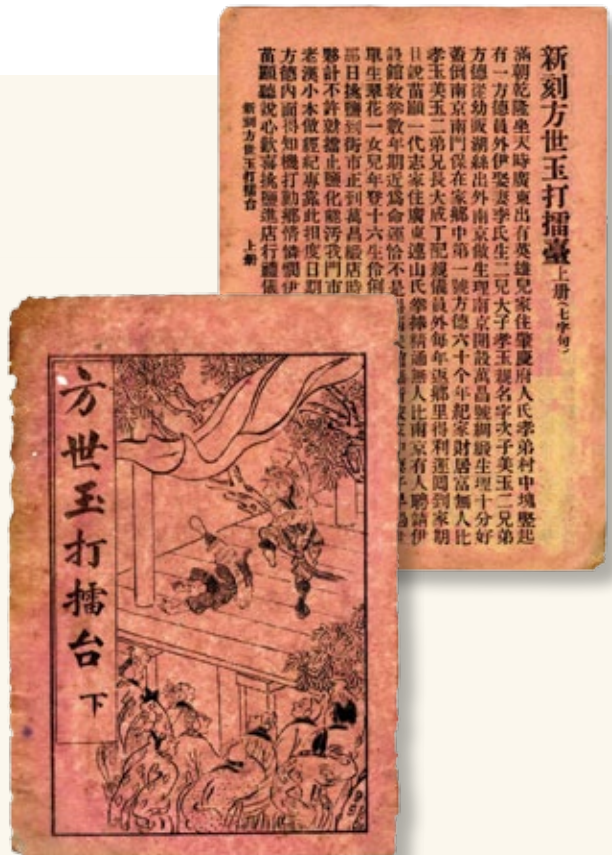 新刻方世玉打擂臺上册(七字句)
滿朝乾隆坐天時廣東出有英雄兒家住肇慶府人氏孝弟村中塊豎起
有一方德員外伊娶妻李氏生二兒大子孝玉親名字次子美玉二兄弟
方德從幼販湖絲出外南京做生理南京開設萬昌號綢緞生理十分好
蓋倒南京南門保在家鄉中第一號方德六十个年紀家財居富無人比
孝玉美玉二弟兄長大成丁配親儀員外每年返鄉里得利運囘到家期
且說苗顯一代志家住廣東遠山氏拳捧精通無人比南京有人聘請伊
設館敎拳數年期近爲命運恰不是
單生翠花一女兒年登十六生伶俐
即日挑鹽到街市正到萬昌緞店時
夥計不許就擋止鹽化能汚我門市
老漢小本做經紀專靠此担度日期
方德內面得知機打動鄉情憐憫伊
苗顯聽說心歡喜挑鹽進店行禮儀
新刻方世玉打擂台 上册
方世玉打擂台 下